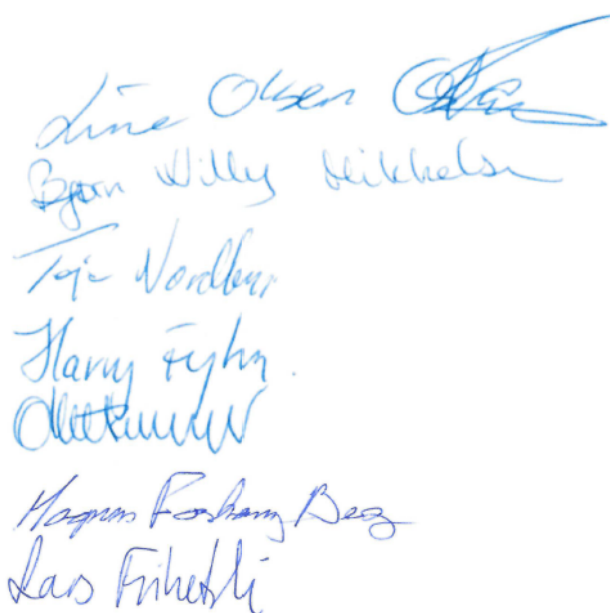 Line Olsen
Bjørn Willy Mikkelsen
Terje Nordberg
Harry Fyhn.
Magnus Forshang Berg
Lars Frihetsli